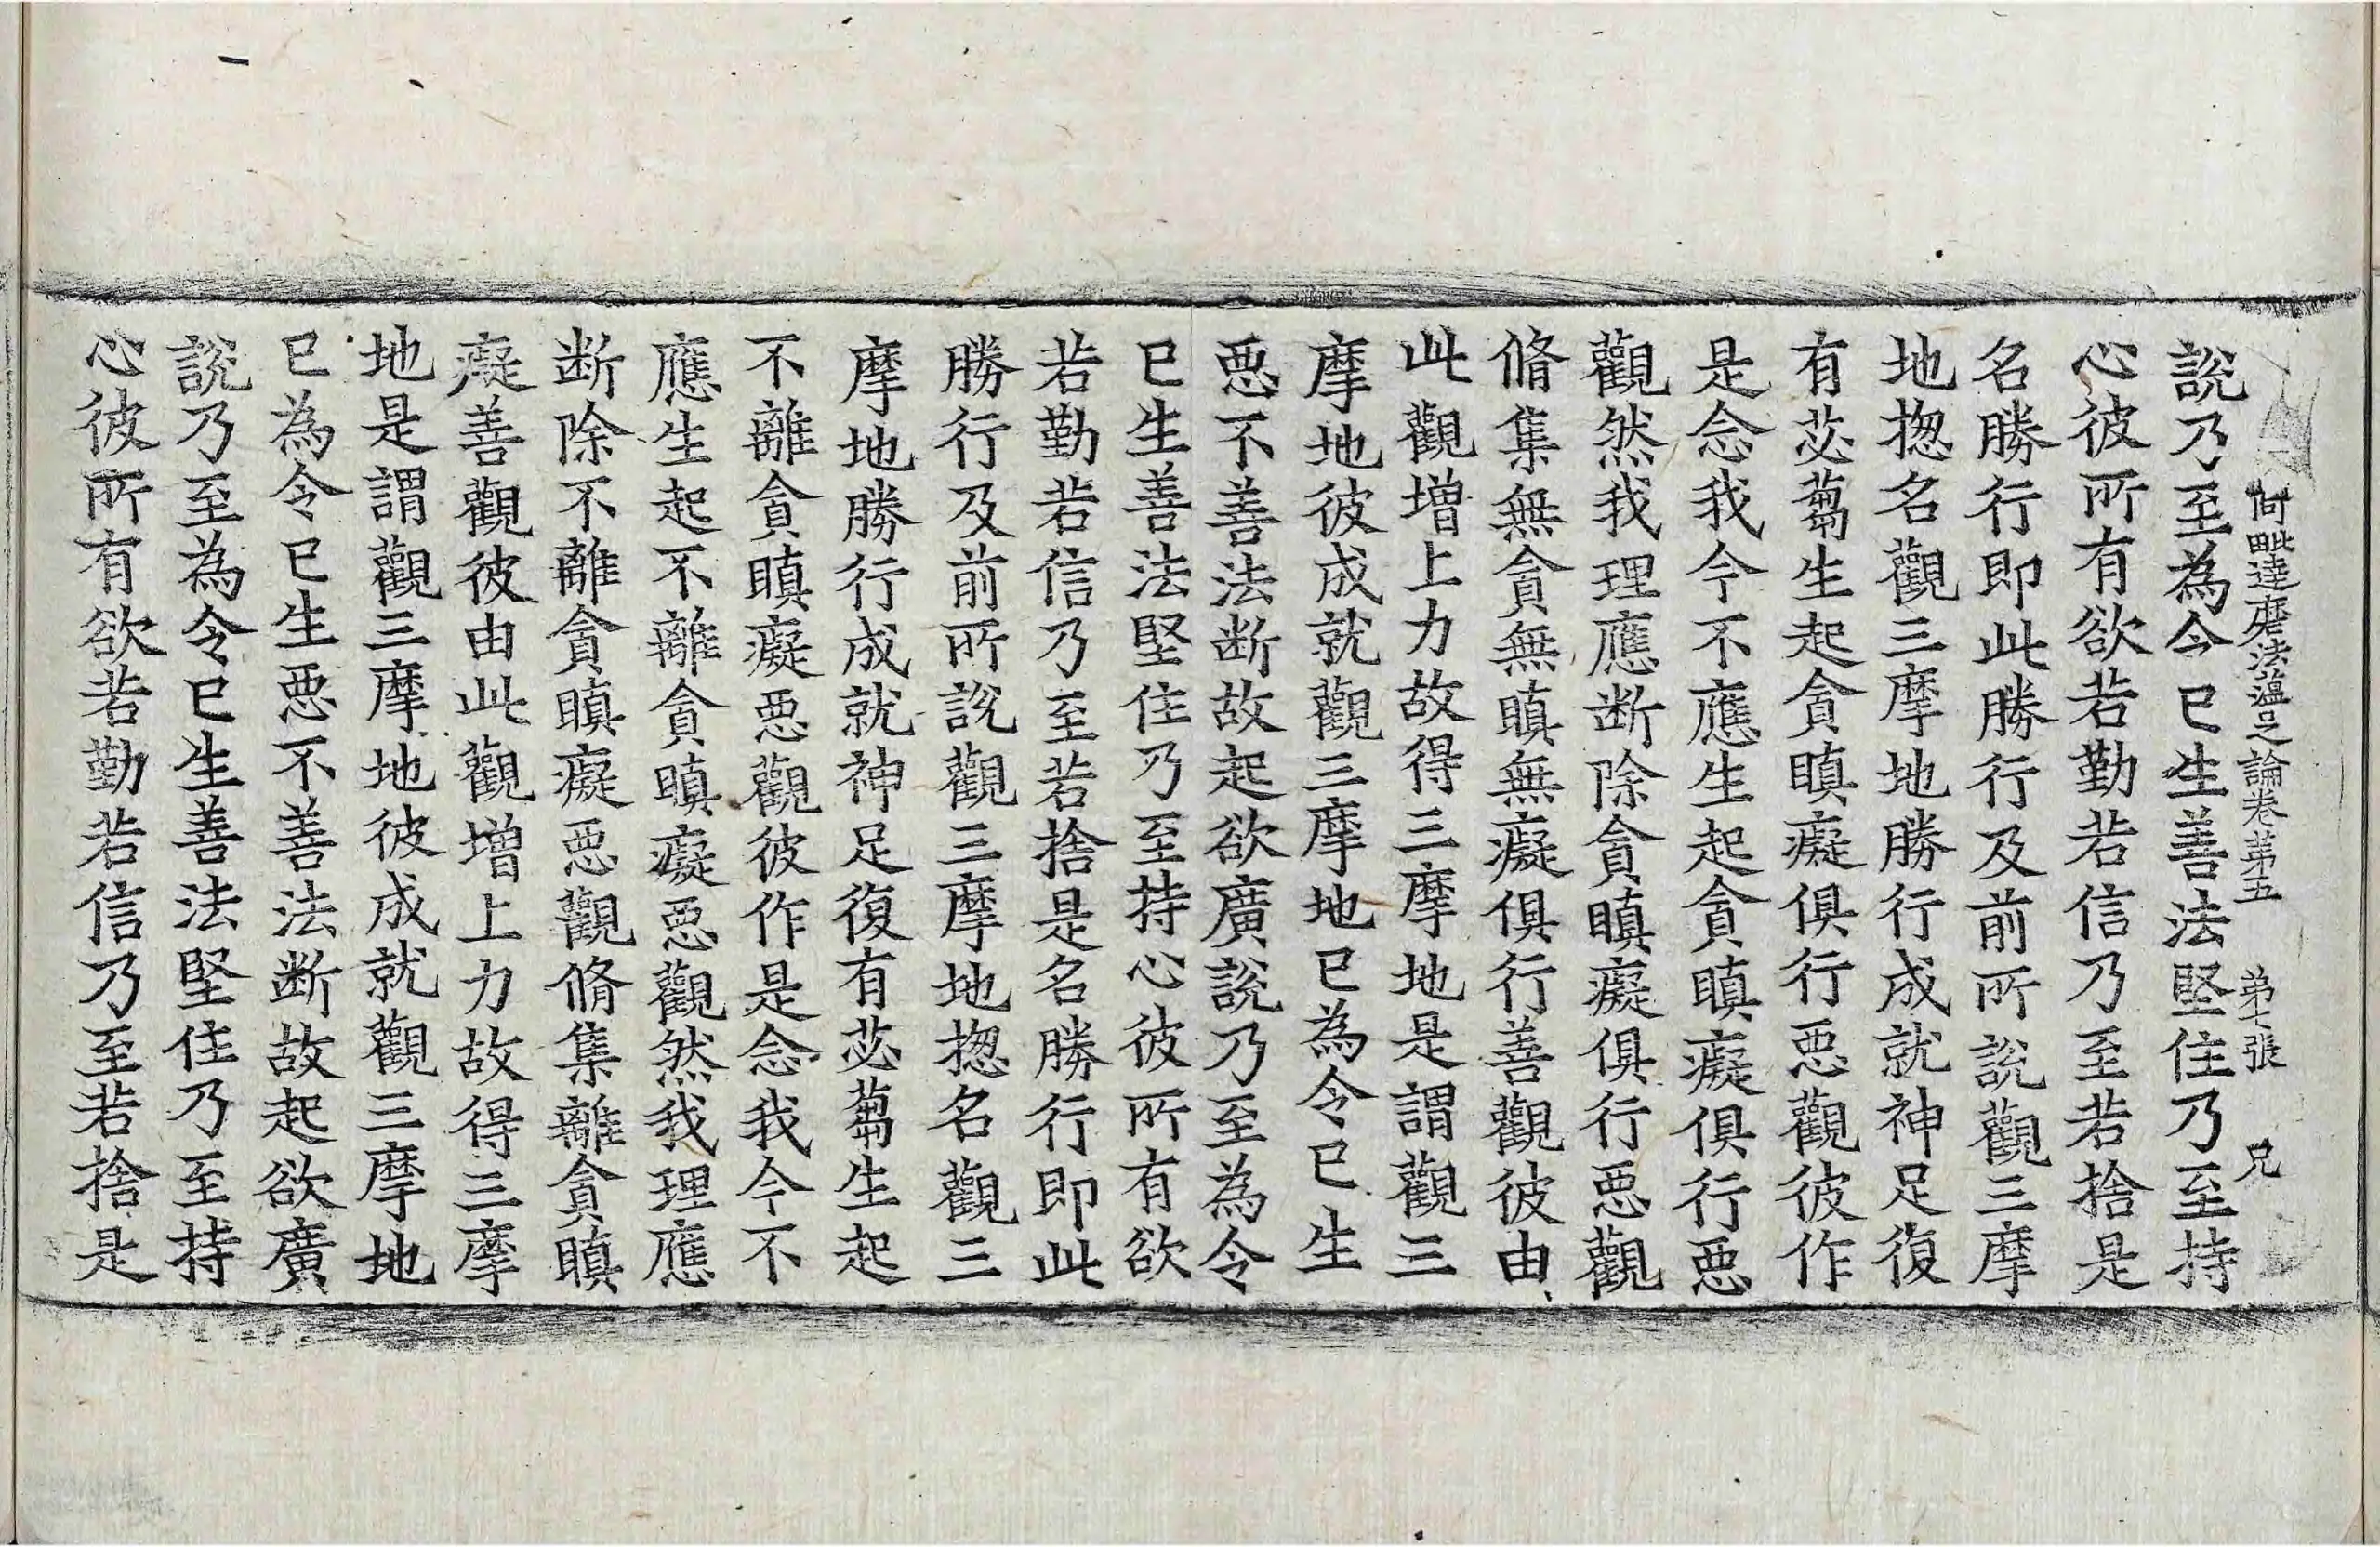 阿毗達磨法蘊足論卷第五 第七張 兄
說乃至為令已生善法堅住乃至持
心彼所有欲若勤若信乃至若捨是
名勝行即此勝行及前所說觀三摩
地揔名觀三摩地勝行成就神足復
有苾蒭生起貪瞋癡俱行惡觀彼作
是念我今不應生起貪瞋癡俱行惡
觀然我理應断除貪瞋癡俱行惡觀
脩集無貪無瞋無癡俱行善觀彼由
此觀增上力故得三摩地是謂觀三
摩地彼成就觀三摩地已為令已生
惡不善法断故起欲廣說乃至為令
已生善法堅住乃至持心彼所有欲
若勤若信乃至若捨是名勝行即此
勝行及前所說觀三摩地揔名觀三
摩地勝行成就神足復有苾蒭生起
不離貪瞋癡惡觀彼作是念我今不
應生起不離貪瞋癡惡觀然我理應
断除不離貪瞋癡惡觀脩集離貪瞋
癡善觀彼由此觀增上力故得三摩
地是謂觀三摩地彼成就觀三摩地
已為令已生惡不善法断故起欲廣
說乃至為令已生善法堅住乃至持
心彼所有欲若勤若信乃至若捨是